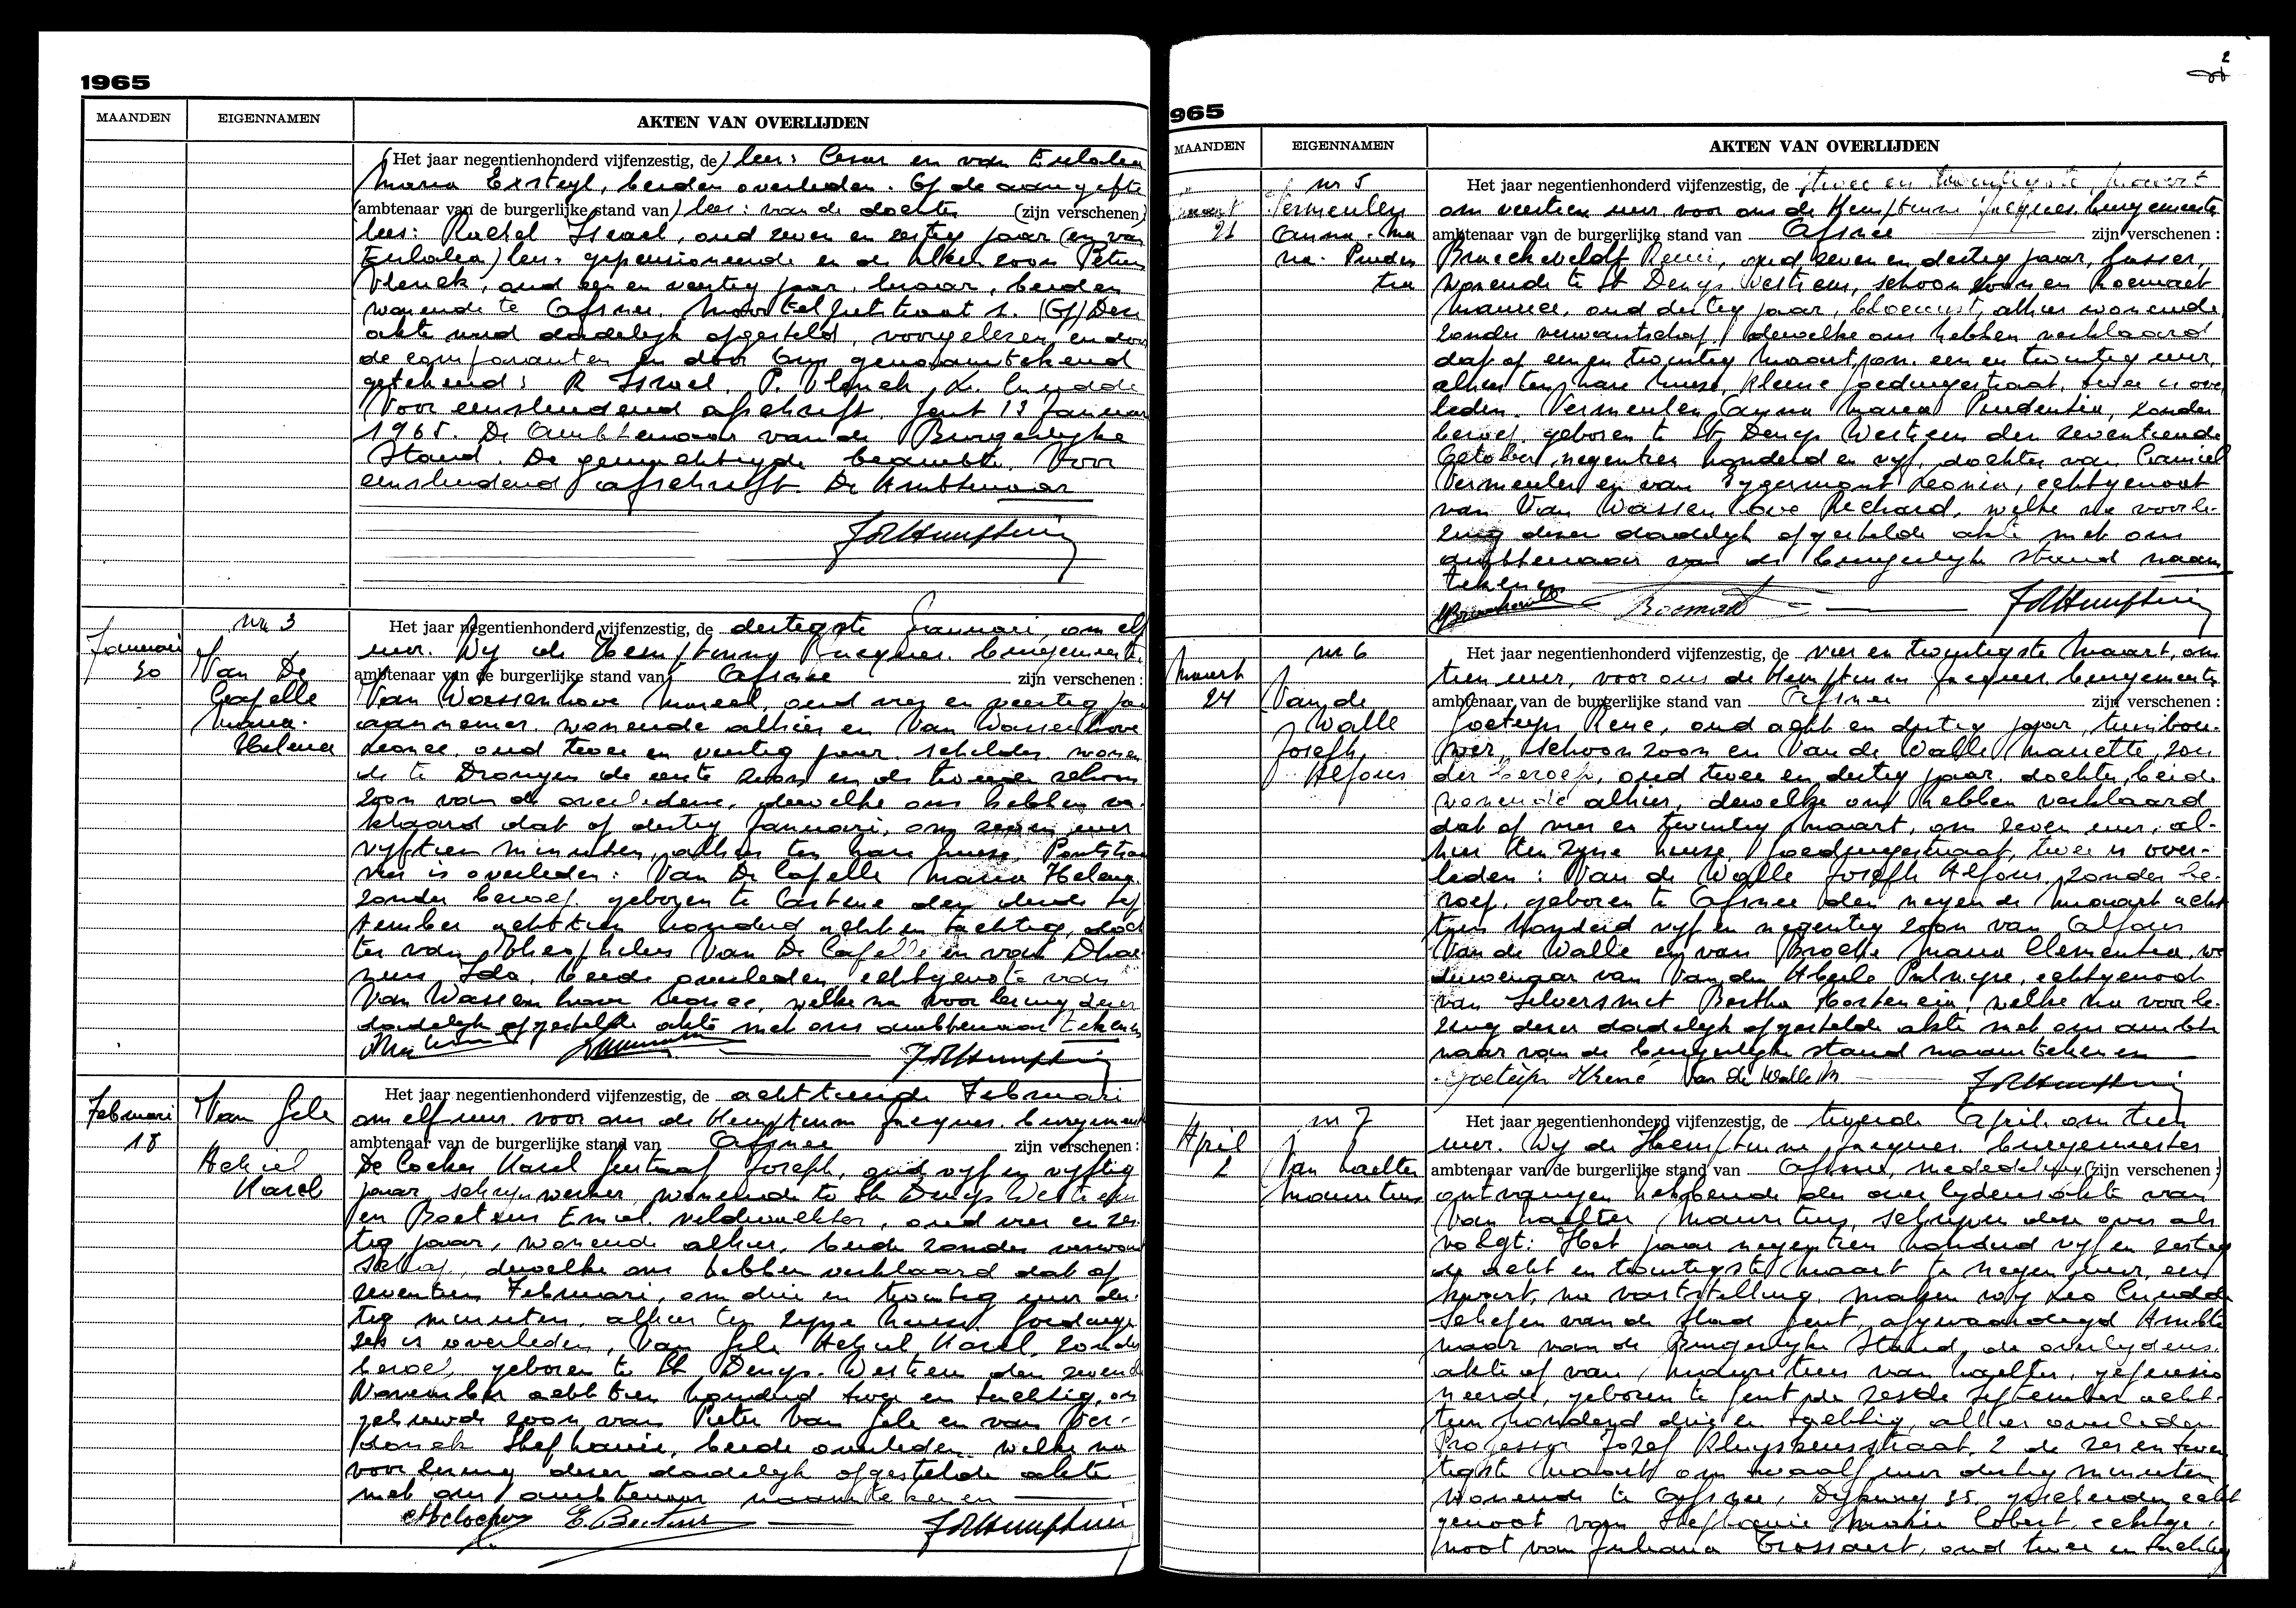 1965
MAANDEN EIGENNAMEN AKTEN VAN OVERLIJDEN
(Het jaar negentienhonderd vijfenzestig, de) lees: Cesar en van Eulalia
Maria Exsteyl, beiden overleden. Op de aangifte
(ambtenaar van de burgerlijke stand van) lees: van de dochter (zijn verschenen)
lees: Rachel Israel, oud zeven en zestig jaar (en van
Eulalia) lees: gepensioneerde en de zoon Petrus
Vlerick, oud een en veertig jaar, beiden
wonende te Afsnee. 1. (Of) Deze
akte werd dadelijk opgesteld, voorgelezen en door
de comparanten en door Ons genaamtekend
getekend: R Israel. P. Vlerick, L.
Voor eensluidend afschrift. Gent 13 Januari
1965. De Ambtenaar van de Burgerlijke
Stand. De gemachtigde beambte. Voor
eensluidend afschrift. De Ambtenaar
nr 3
Januari
30
Van De
Capelle
Maria
Helena
Het jaar negentienhonderd vijfenzestig, de dertigste Januari, om elf
uur. Wij de Hemptinne Jacques. burgemeester
ambtenaar van de burgerlijke stand van Afsnee zijn verschenen:
Van Wassenhove Marcel, oud en veertig jaar
aannemer, wonende alhier en Van Wassenhove
Leonce, oud twee en veertig jaar schilder wonen
de te Drongen de eerste zoon en de tweede schoon
zoon van de overledene, dewelke ons hebben ver
klaard dat op dertig Januari, om zeven uur
vijftien minuten, alhier ten hare huize,
vier is overleden: Van De Capelle Maria Helena
zonder beroep, geboren te den derde Sep
tember achttien honderd acht en tachtig, doch
ter van Theophiel Van De Capelle en van
Ida, beide overleden echtgenote van
Van Wassenhove Leonce, welke na voorlezing dezer
dadelijk opgestelde akte met ons ambtenaar tekenen
Februari
18
Van Gele
Achiel
Karel
Het jaar negentienhonderd vijfenzestig, de achttiende Februari
om elf uur voor ons de Hemptinne Jacques. burgemeester
ambtenaar van de burgerlijke stand van Afsnee zijn verschenen:
De Cocker Karel Gustaaf Joseph, oud vijf en vijftig
jaar, schrijnwerker, wonende te St Denys Westrem
en Baetens Emiel veldwachter, oud vier en zes
tig jaar, wonende alhier, beide zonder verwant
schap, dewelke ons hebben verklaard dat op
zeventien Februari, om drie en twintig uur der
tig minuten, alhier ten zijne huize Goedinge
zes is overleden, Van Gele Achiel Karel, zonder
beroep, geboren te St Denys-Westrem den zevende
November achttien honderd twee en tachtig, on
gehuwde zoon van Pieter Van Gele en van Ver-
donck Stephanie, beide overleden welke na
voorlezing dezer dadelijk opgestelde akte
met ons ambtenaar naamtekenen
E. Baetens
2
965
MAANDEN EIGENNAMEN AKTEN VAN OVERLIJDEN
nr 5
Maart
21
Vermeulen
Anna-Ma
ria-Pruden
tia
Het jaar negentienhonderd vijfenzestig, de twee en twintigste Maart
om veertien uur voor ons de Hemptinne Jacques burgemeester
ambtenaar van de burgerlijke stand van Afsnee zijn verschenen:
Braeckeveldt Remi, oud zeven en dertig jaar,
wonende te St Denys Westrem, schoonzoon en Roemaet
Maurice, oud dertig jaar, bloemist, alhier wonende
zonder verwantschap dewelke ons hebben verklaard
dat op een en twintig Maart, om een en twintig uur,
alhier ten hare huize, Kleine Goedingestraat, twee is over
leden. Vermeulen Anna Maria Prudentia, zonder
beroep geboren te St Denys Westrem den zeventiende
October negentien honderd en vijf, dochter van Camiel
Vermeulen en van Eygermont Leonia, echtgenoot
van Van Wassenhove Richard, welke na voorle-
zing dezer dadelijk opgestelde akte met ons
ambtenaar van de burgerlijke stand naam
tekenen
nr 6
Maart
24
Van de
Walle
Joseph
Alfons
Het jaar negentienhonderd vijfenzestig, de vier en twintigste Maart, om
tien uur, voor ons de Hemptinne Jacques burgemeester
ambtenaar van de burgerlijke stand van Afsnee zijn verschenen:
Goeteyn Rene, oud acht en dertig jaar, tuinbou-
wer, schoonzoon en Van de Walle Mariette, zon
der beroep, oud twee en dertig jaar dochter, beide
wonende alhier, dewelke ons hebben verklaard
dat op vier en twintig Maart, om zeven uur, al-
hier ten zijne huize Goedingestraat, twee is over-
leden: Van de Walle Joseph Alfons, zonder be-
roep, geboren te Afsnee den negende Maart acht
tien honderd vijf en negentig zoon van Alfons
Van de Walle en van Broecke Maria Clementia, we
duwenaar van Van den Abeele Palmyre, echtgenoot
van Silversmet Bertha Hortensia, welke na voorle-
zing dezer dadelijk opgestelde akte met ons ambte
naar van de burgerlijke stand naamtekenen
Goeteyn René Van de Walle M
nr 7
April
2
Van Haelter
Mauritius
Het jaar negentienhonderd vijfenzestig, de tweede April om tien
uur. Wij de Hemptinne Jacques burgemeester
ambtenaar van de burgerlijke stand van Afsnee, mededeling (zijn verschenen:)
ontvangen hebbende den overlijdensakte van
Van Haelter Mauritius, schrijven deze over als
volgt: Het jaar negentien honderd vijf en zestig
de acht en twintigste Maart te negen uur, een
kwart, na vaststelling, maken wij Leo
schepen van de Stad Gent, afgevaardigd Ambte
naar van de Burgerlijke Stand, de overlijdens
akte op van Mauritius van Haelter, gepensio
neerde, geboren te Gent de zesde September acht-
tien honderd drie en tachtig, alhier overleden
Professor Jozef Kluyskensstraat, 2 de zes en twin
tigste Maart om twaalf uur dertig minuten
wonende te Afsnee, 35, gescheiden echt
genoot van Stephanie Marie Cobert, echtge-
noot van Juliana Trossaert, oud twee en tachtig